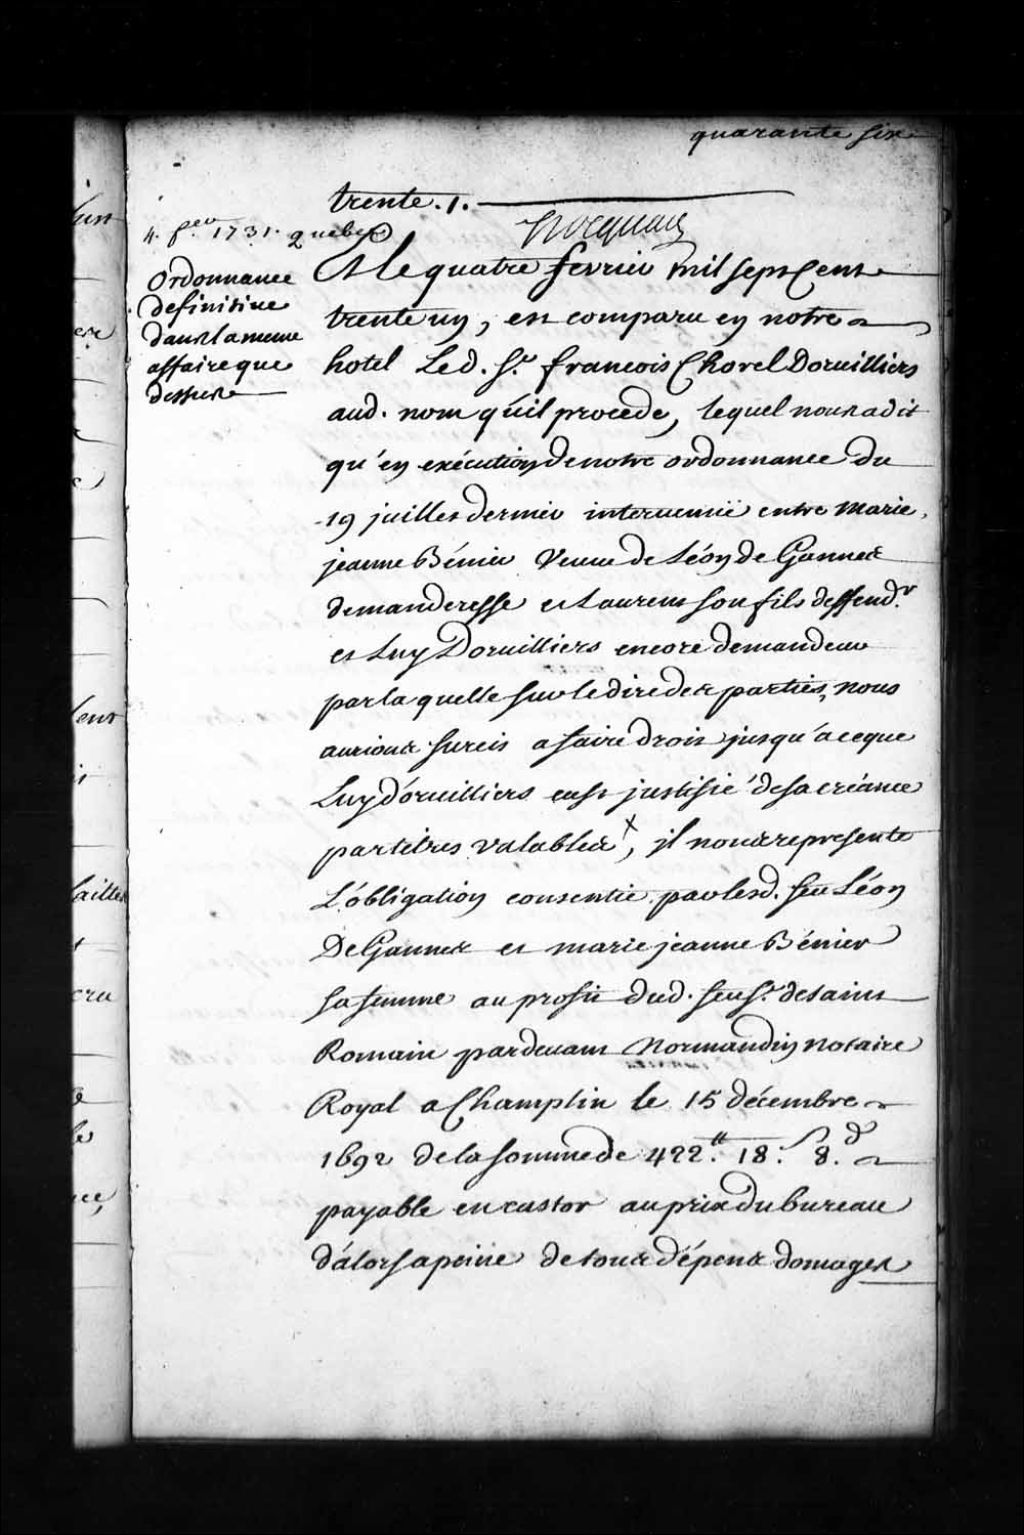 quarante six
trente. 1.
Hocquart
4. fer. 1731. quebec
Ordonnance
definitive
dans la meme
affaire que
dessus
Et le quatre fevrier mil sept Cent
trente un, est comparu en notre
hotel Led. Sr. francois Chorel Dorvilliers
aud. nom qu'il procede, lequel nous a dit
qu'en exécution de notre ordonnance du
19 juillet dernier intervenuë entre Marie
jeanne Bénier Veuve de Léon de Gannes
demanderesse et Laurens son fils deffendr
et Luy Dorvilliers encore demandeur
par la quelle sur le dire des parties, nous
aurions surcis a faire droit jusqu'a ce que
Luy d'orvilliers eust justifié de sa créance
par titres valables x, il nous represente
L'obligation consentie par lesd. feu Léon
De Gannes et marie jeanne Bénier
sa femme au profit dud. feu Sr. de saint
Romain pardevant Normandin Notaire
Royal a Champlin le 15 décembre
1692 de la somme de 422.tt 18. s 8. d
payable en castor au prix du bureau
d'alors a peine de tous dépens domages
Sur
ere
leur
cru